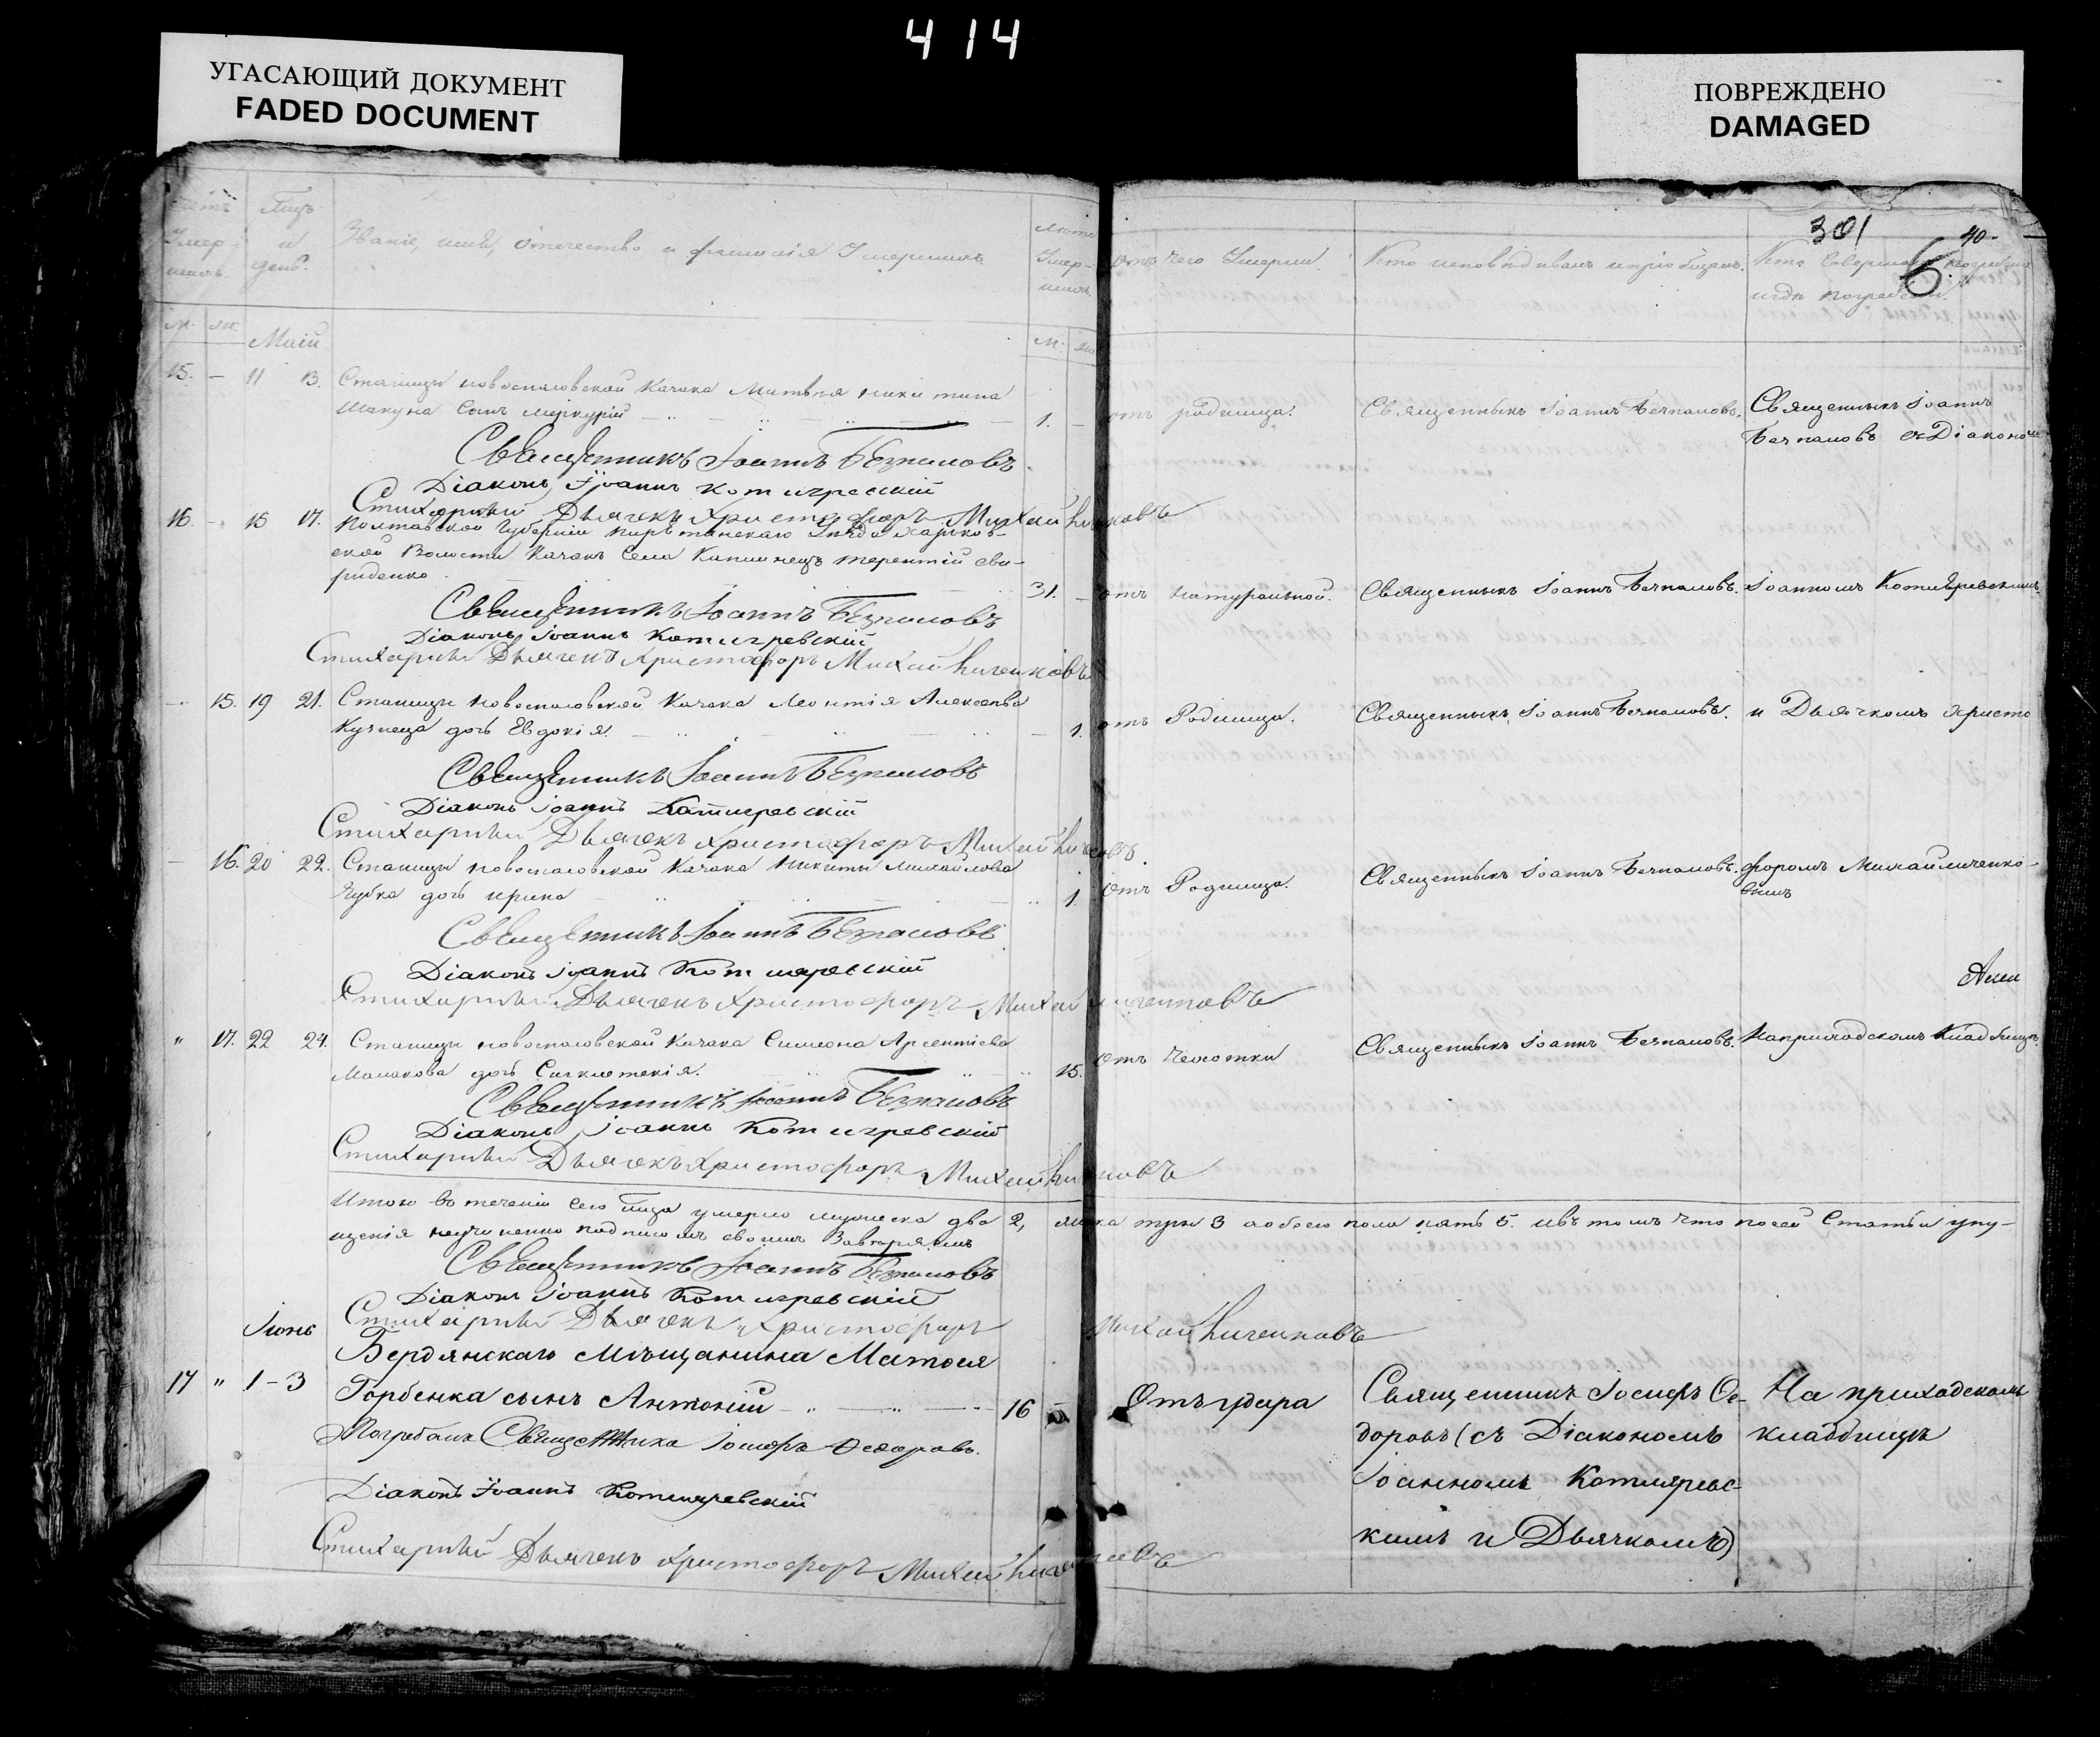 414
УГАСАЮЩИЙ ДОКУМЕНТ
FADED DOCUMENT
ПОВРЕЖДЕНО
DAMAGED
301
40.
6.
Званіе, имя, отечество и фамилія Умершихъ.
Отъ чего Умерли.
Кто исповѣдывалъ и пріобщалъ.
М. Ж.
Маій
М.
15. – 11 13. Станицы новоспасовской Казака Матвѣя никитина
Шакуна Сынъ меркурій 1. – отъ родимца. Священникъ Іоаннъ Безпаловъ. Священникъ Іоаннъ
Безпаловъ съ Діакономъ
Священникъ Іоаннъ Безпаловъ
Діаконъ Іоаннъ Котляревскій
Стихарный Дьячекъ Христофоръ Михайличенковъ
16. – 15 17. Полтавской Губерніи Пирятинскаго Уѣзда Харьков-
ской Волости Казакъ Села Капшнецъ терентій сви-
риденко 31. – отъ натуральной. Священникъ Іоаннъ Безпаловъ. Іоанномъ Котляревскимъ
Священникъ Іоаннъ Безпаловъ
Діаконъ Іоаннъ Котляревскій
Стихарный Дьячекъ Христофоръ Михайличенковъ
– 15. 19 21. Станицы новоспасовской Казака Леонтія Алексѣева
Кузнеца дочь Евдокія. – 1. отъ Родимца. Священникъ Іоаннъ Безпаловъ. и Дьячкомъ Христо
Священникъ Іоаннъ Безпаловъ
Діаконъ Іоаннъ Котляревскій
Стихарный Дьячекъ Христофоръ Михайличенковъ.
– 16. 20 22. Станицы новоспасовской Казака Никиты Михайлова
Зубка дочь ирина 1. отъ Родимца. Священникъ Іоаннъ Безпаловъ. форомъ Михайличенко-
вымъ
Священникъ Іоаннъ Безпаловъ
Діаконъ Іоаннъ Котляревскій
Стихарный Дьячекъ Христофоръ Михайличенковъ
" 17. 22 24. Станицы новоспасовской Казака Симеона Арсентіева
Малахова дочь Синклетекія. 15. отъ Чехотки Священникъ Іоаннъ Безпаловъ. На приходскомъ Кладбищѣ.
Священникъ Іоаннъ Безпаловъ
Діаконъ Іоаннъ Котляревскій
Стихарный Дьячекъ Христофоръ Михайличенковъ
Итого въ теченіи сего м-ца умерло мужеска два 2, женска три 3 а обоего пола пять 5. и въ томъ что по сей Статьи упу-
щенія неучинено подписомъ своимъ Завѣряемъ
Священникъ Іоаннъ Безпаловъ
Діаконъ Іоаннъ Котляревскій
Стихарный Дьячекъ Христофоръ Михайличенковъ
Іюнь
17 " 1–3 Бердянскаго Мѣщанина Матвея
Горбенка сынъ Антоній 16 – Отъ удара Священникъ Іосифъ Ѳе-
доровъ (съ Діакономъ
Іоанномъ Котляревс-
кимъ и Дьячкомъ) На приходскомъ
кладбищѣ
Погребалъ Священника Іосифъ Ѳедоровъ.
Діаконъ Іоаннъ Котляревскій
Стихарный Дьячекъ Христофоръ Михайличенковъ